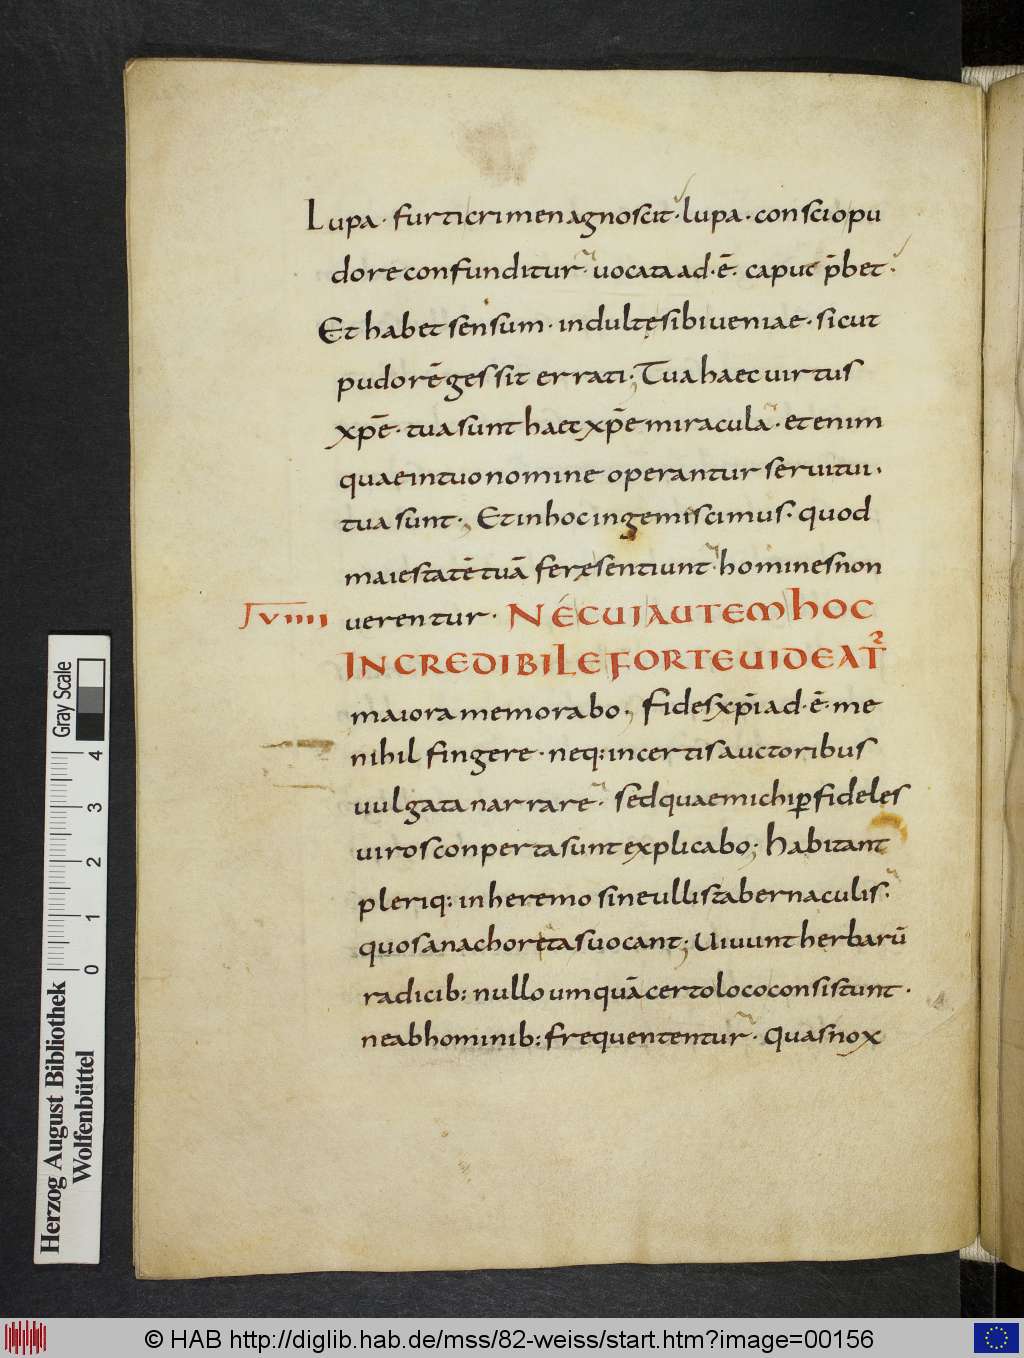 Lupa · furti crimen agnoscit · lupa · conscio pu
dore confunditur · uocata ad · ē · caput p̄bet ·
Et habet sensum · indultę sibi ueniae · sicut
pudorē gessit errati ; Tua haec uirtus
xp̄e · tua sunt haec xp̄e miracula · etenim
quae in tuo nomine operantur seruitui ·
tua sunt ; Et in hoc ingemiscimus · quod
maiestatē tuā ferę sentiunt · homines non
uerentur · NE CUI AUTEM HOC
VIIII
INCREDIBILE FORTE UIDEAT᷑
maiora memorabo ; Fides xp̄i ad · ē · me
nihil fingere · neq: incertis auctoribus
uulgata narrare · sed quae michi ꝑ fideles
uiros conperta sunt explicabo ; Habitant
pleriq: in heremo sine ullis tabernaculis ·
quos anachoretas uocant ; Uiuunt herbarū
radicib: nullo umquā certo loco consistunt ·
ne ab hominib: frequententur · Quas nox
Gray Scale
4 3 2 1 0
Herzog August Bibliothek
Wolfenbüttel
© HAB http://diglib.hab.de/mss/82-weiss/start.htm?image=00156